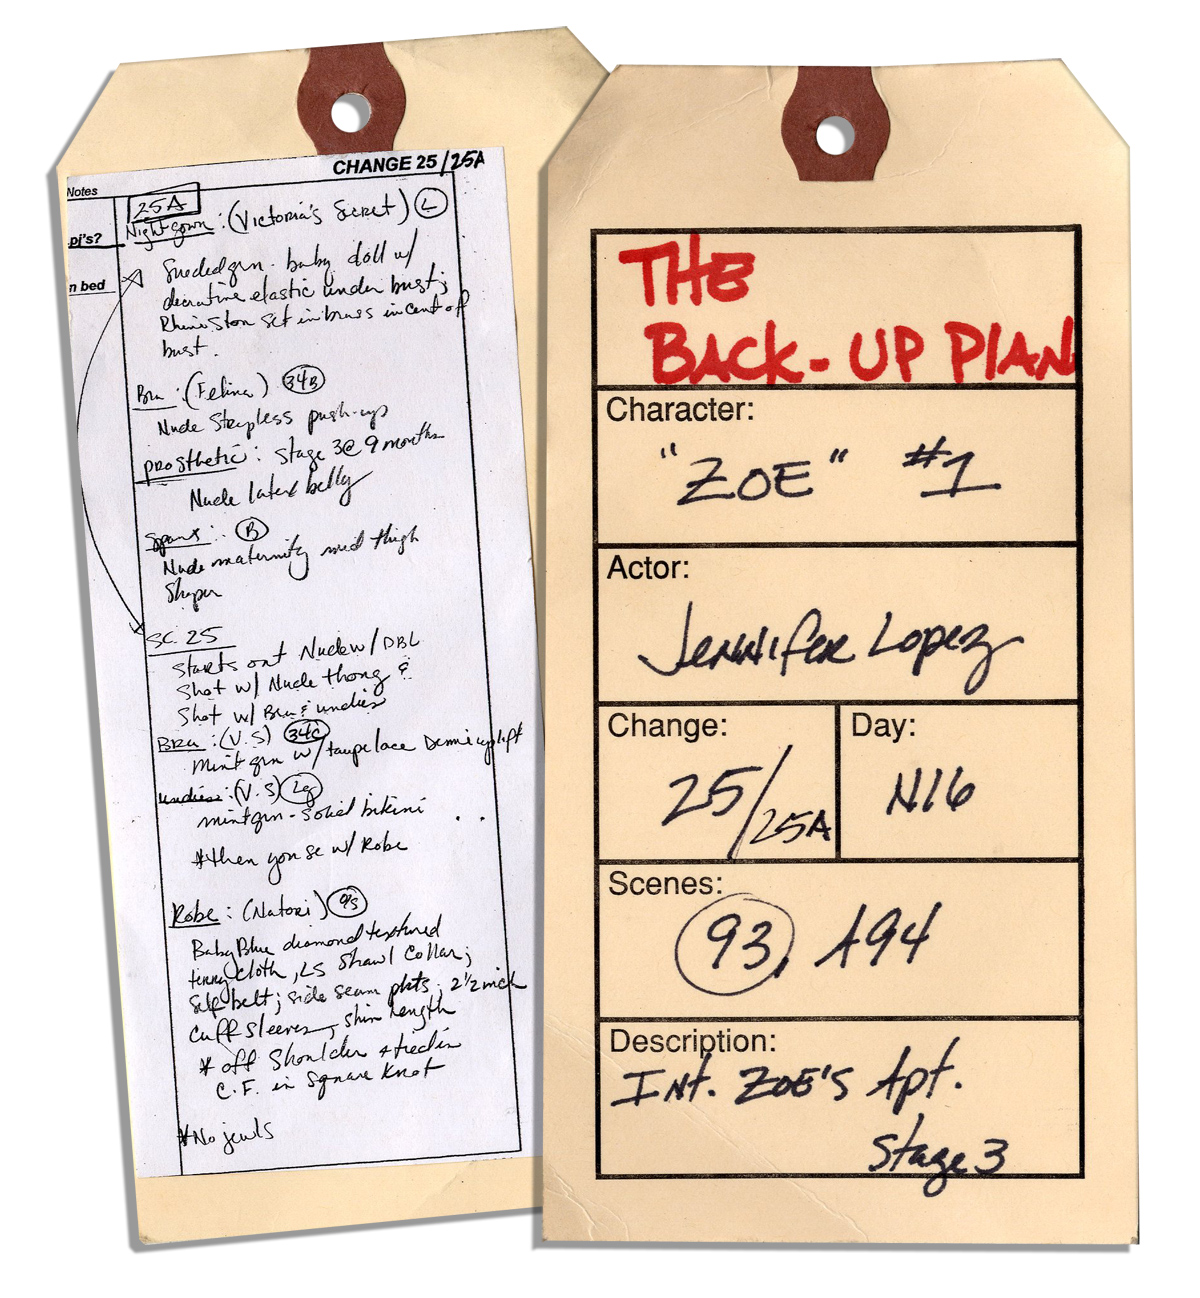 CHANGE 25/25A
Notes
25A
pl's?
Nightgown: (Victoria's Secret) L
n bed
Sueded grn. baby doll w/
decrative elastic under bust;
Rhineston set in brass in cent of
bust.
Bra: (Felina) 34B
Nude Strapless push-up
prosthetic: Stage 3 @ 9 months
Nude latex belly
Spanx: B
Nude maternity mid thigh
Shaper
SC. 25
Starts out Nude w/ DBL
Shot w/ Nude thong &
Shot w/ Bra & undies
Bra: (V.S) 34C
Mint grn w/ taupe lace Demi uplift
undies: (V.S) Lg
mint grn - solid bikini
*then you se w/ Robe
Robe: (Natori) O/S
Baby Blue diamond textured
terry cloth, LS Shawl Collar;
Self belt; side seam pkts; 2 1/2 inch
cuff sleeves, shin length
* off Shoulder + tied in
C.F. in Square Knot
*No jewls
THE
BACK-UP PLAN
Character:
"ZOE" #1
Actor:
Jennifer Lopez
Change:
25/25A
Day:
N16
Scenes:
93, A94
Description:
Int. ZOE'S Apt.
Stage 3